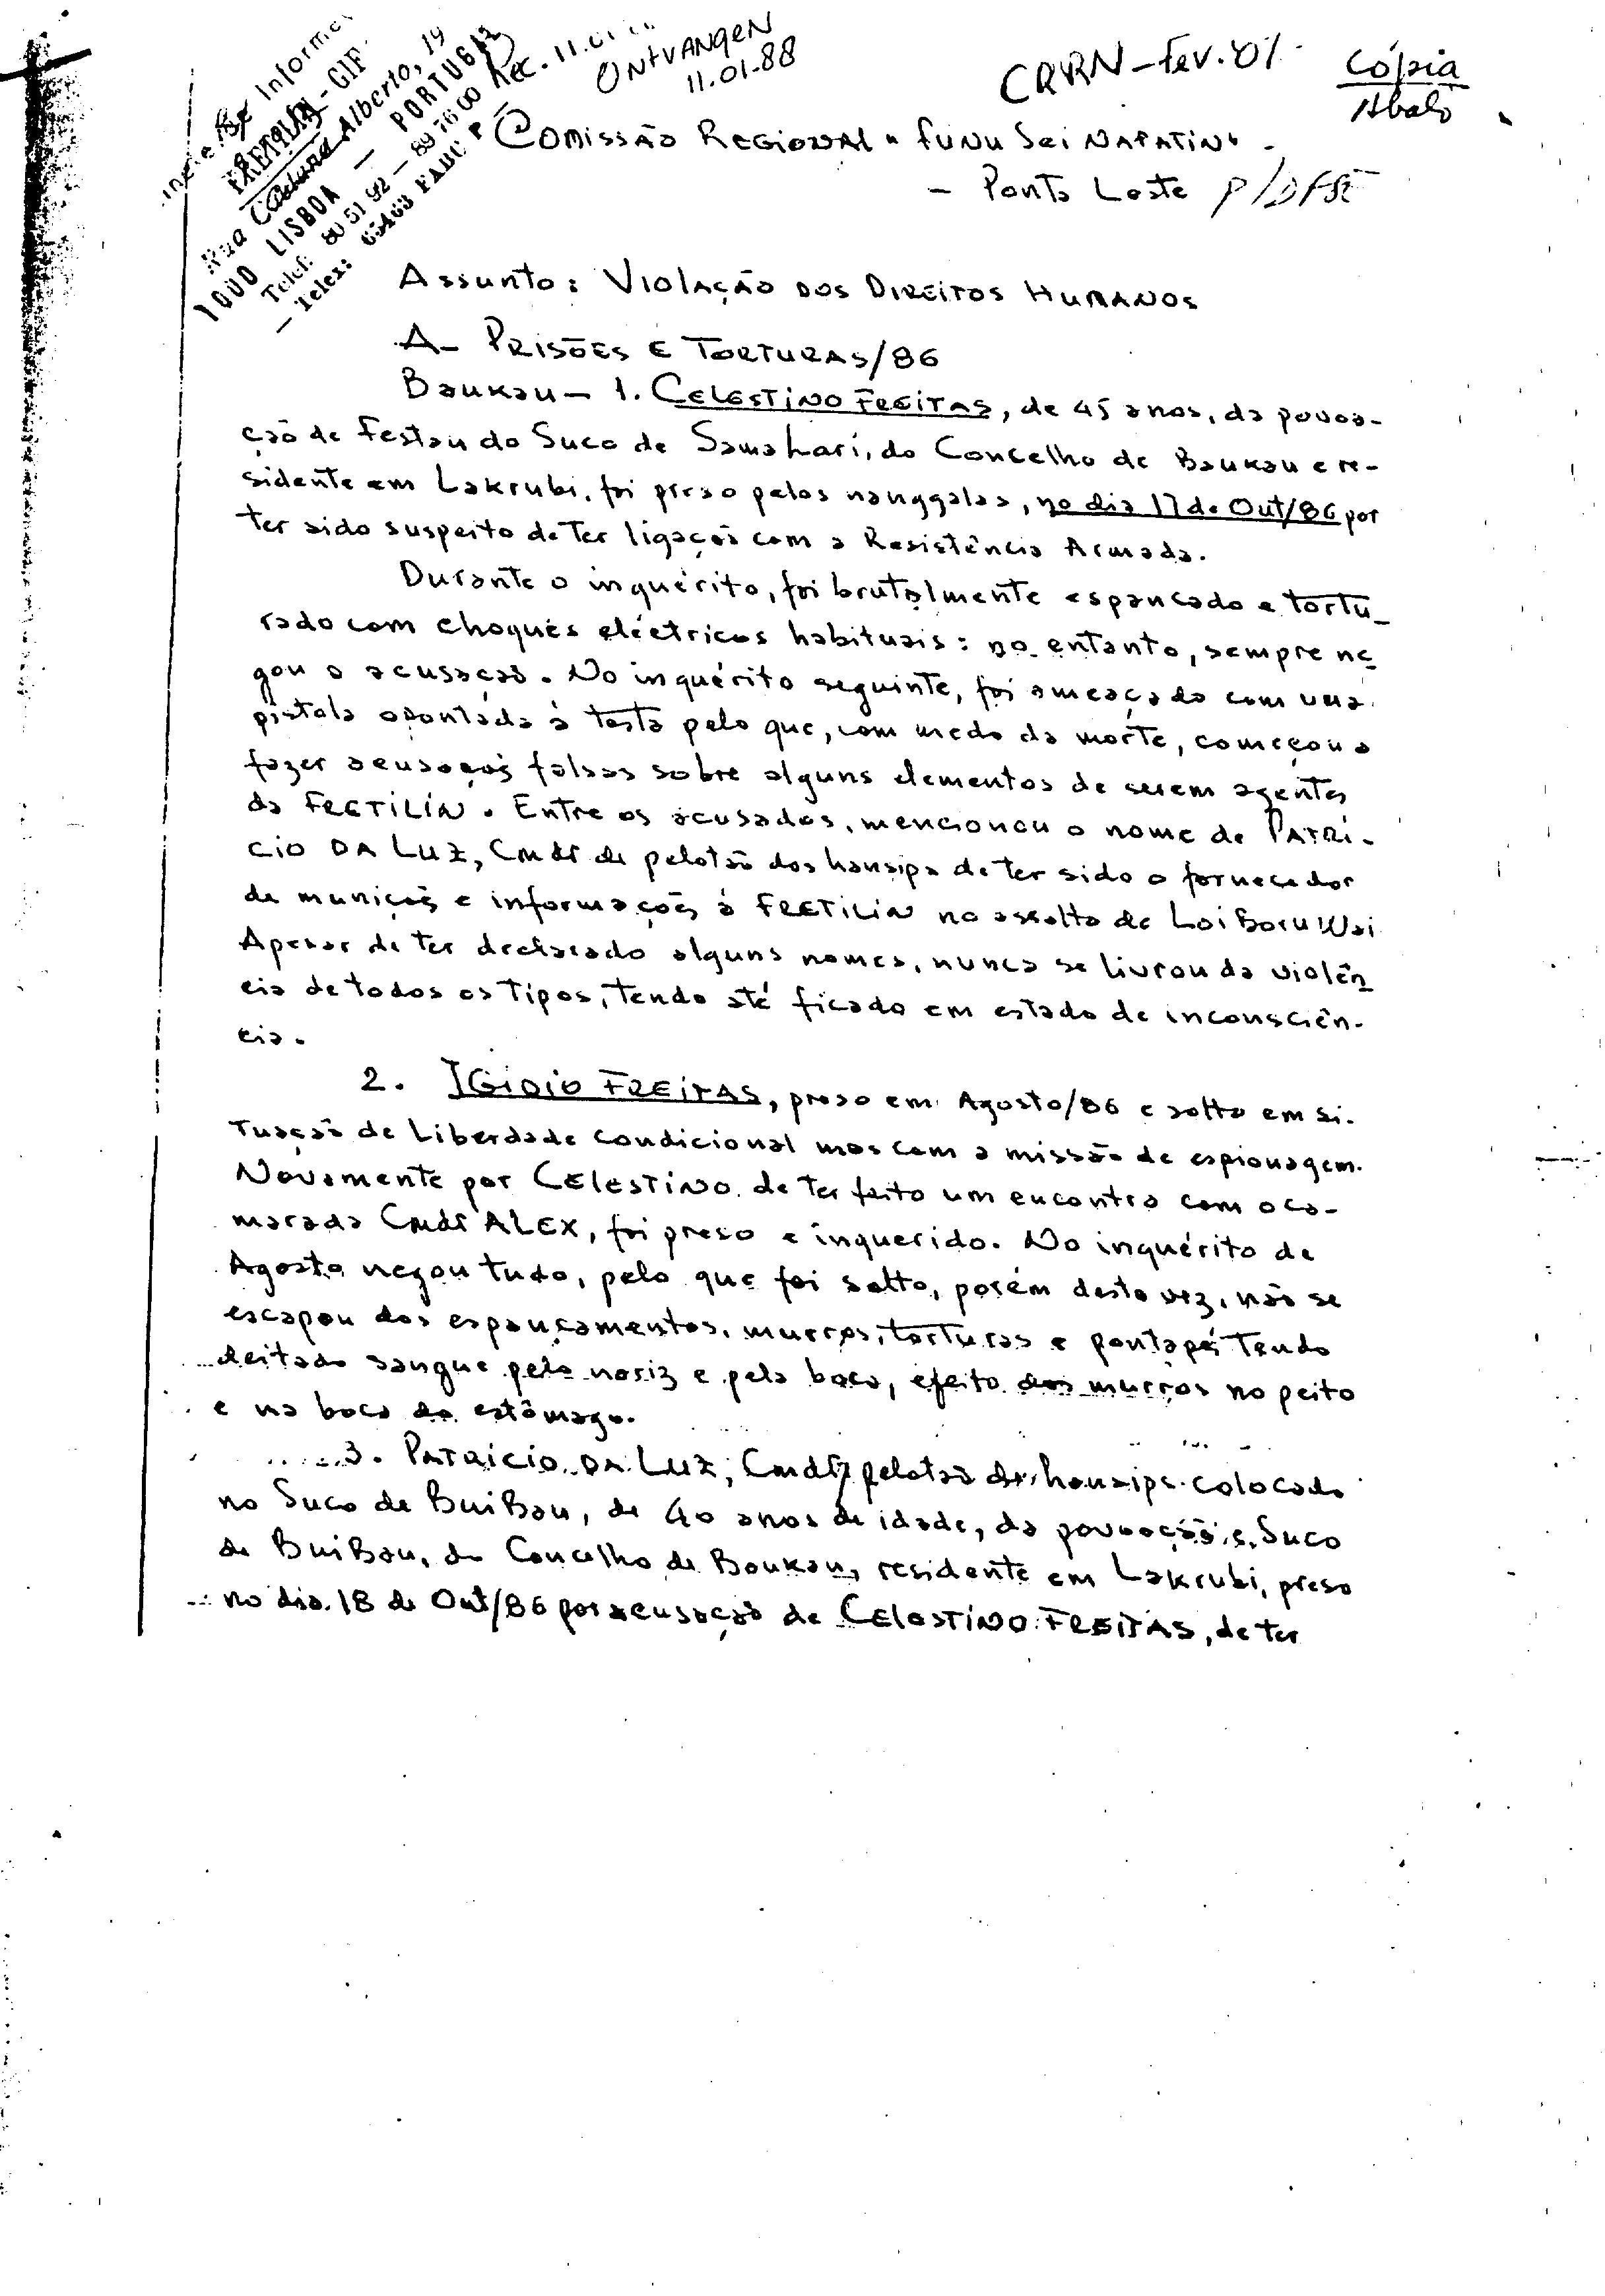 Informa
FRETILIN - GIF
Rua Alberto, 19
1000 LISBOA — PORTUGAL
Telef: 80 51 92 — 89 76 00
— Telex: FADC P
Rec. 11.01
ONTVANGEN
11.01.88
CRRN - Fev. 87
Cópia
Abalo
Comissão Regional "Funu Sei Nafatin" -
- Ponta Leste P/DFSE
Assunto: Violação dos Direitos Humanos
A - Prisões e Torturas/86
Baukau - 1. Celestino Freitas, de 45 anos, da povoa-
ção de Festau do Suco de Samalari, do Concelho de Baukau e re-
sidente em Lakrubi, foi preso pelos nanggalas, no dia 17 de Out/86 por
ter sido suspeito de ter ligação com a Resistência Armada.
Durante o inquérito, foi brutalmente espancado e tortu_
rado com choques eléctricos habituais: no entanto, sempre ne
gou a acusação. No inquérito seguinte, foi ameaçado com uma
pistola apontada à testa pelo que, com medo da morte, começou a
fazer acusações falsas sobre alguns elementos de serem agentes
da FRETILIN. Entre os acusados, mencionou o nome de Patri-
cio da Luz, Cmdt de pelotão dos hansips de ter sido o fornecedor
de munições e informações à FRETILIN no assalto de LoiBoru Wai
Apesar de ter declarado alguns nomes, nunca se livrou da violên
cia de todos os tipos, tendo até ficado em estado de inconsciên-
cia.
2. Igidio Freitas, preso em Agosto/86 e solto em si-
tuação de Liberdade condicional mas com a missão de espionagem.
Novamente por Celestino de ter feito um encontro com o ca-
marada Cmdt ALEX, foi preso e inquerido. No inquérito de
Agosto negou tudo, pelo que foi solto, porém desta vez, não se
escapou dos espancamentos, murros, torturas e pontapés tendo
deitado sangue pelo nariz e pela boca, efeito dos murros no peito
e na boca do estômago.
3. Patricio da Luz, Cmdt pelotão de hansips colocado
no Suco de BuiBau, de 40 anos de idade, da povoação e Suco
de BuiBau, do Concelho de Baukau, residente em Lakrubi, preso
no dia 18 de Out/86 por acusação de Celestino Freitas, de ter